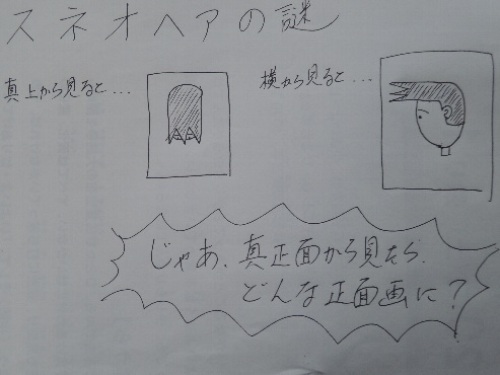 スネオヘアの謎
真上から見ると…
横から見ると…
じゃあ、真正面から見たら、
どんな正面画に？